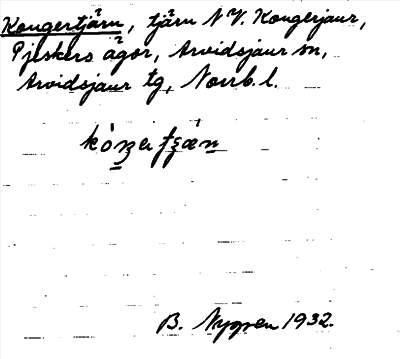 Kongertjärn, tjärn N V. Kongerjaur,
Pjeskers ägor, Arvidsjaur sn,
Arvidsjaur tg, Norrb. l.
B. Nygren 1932.